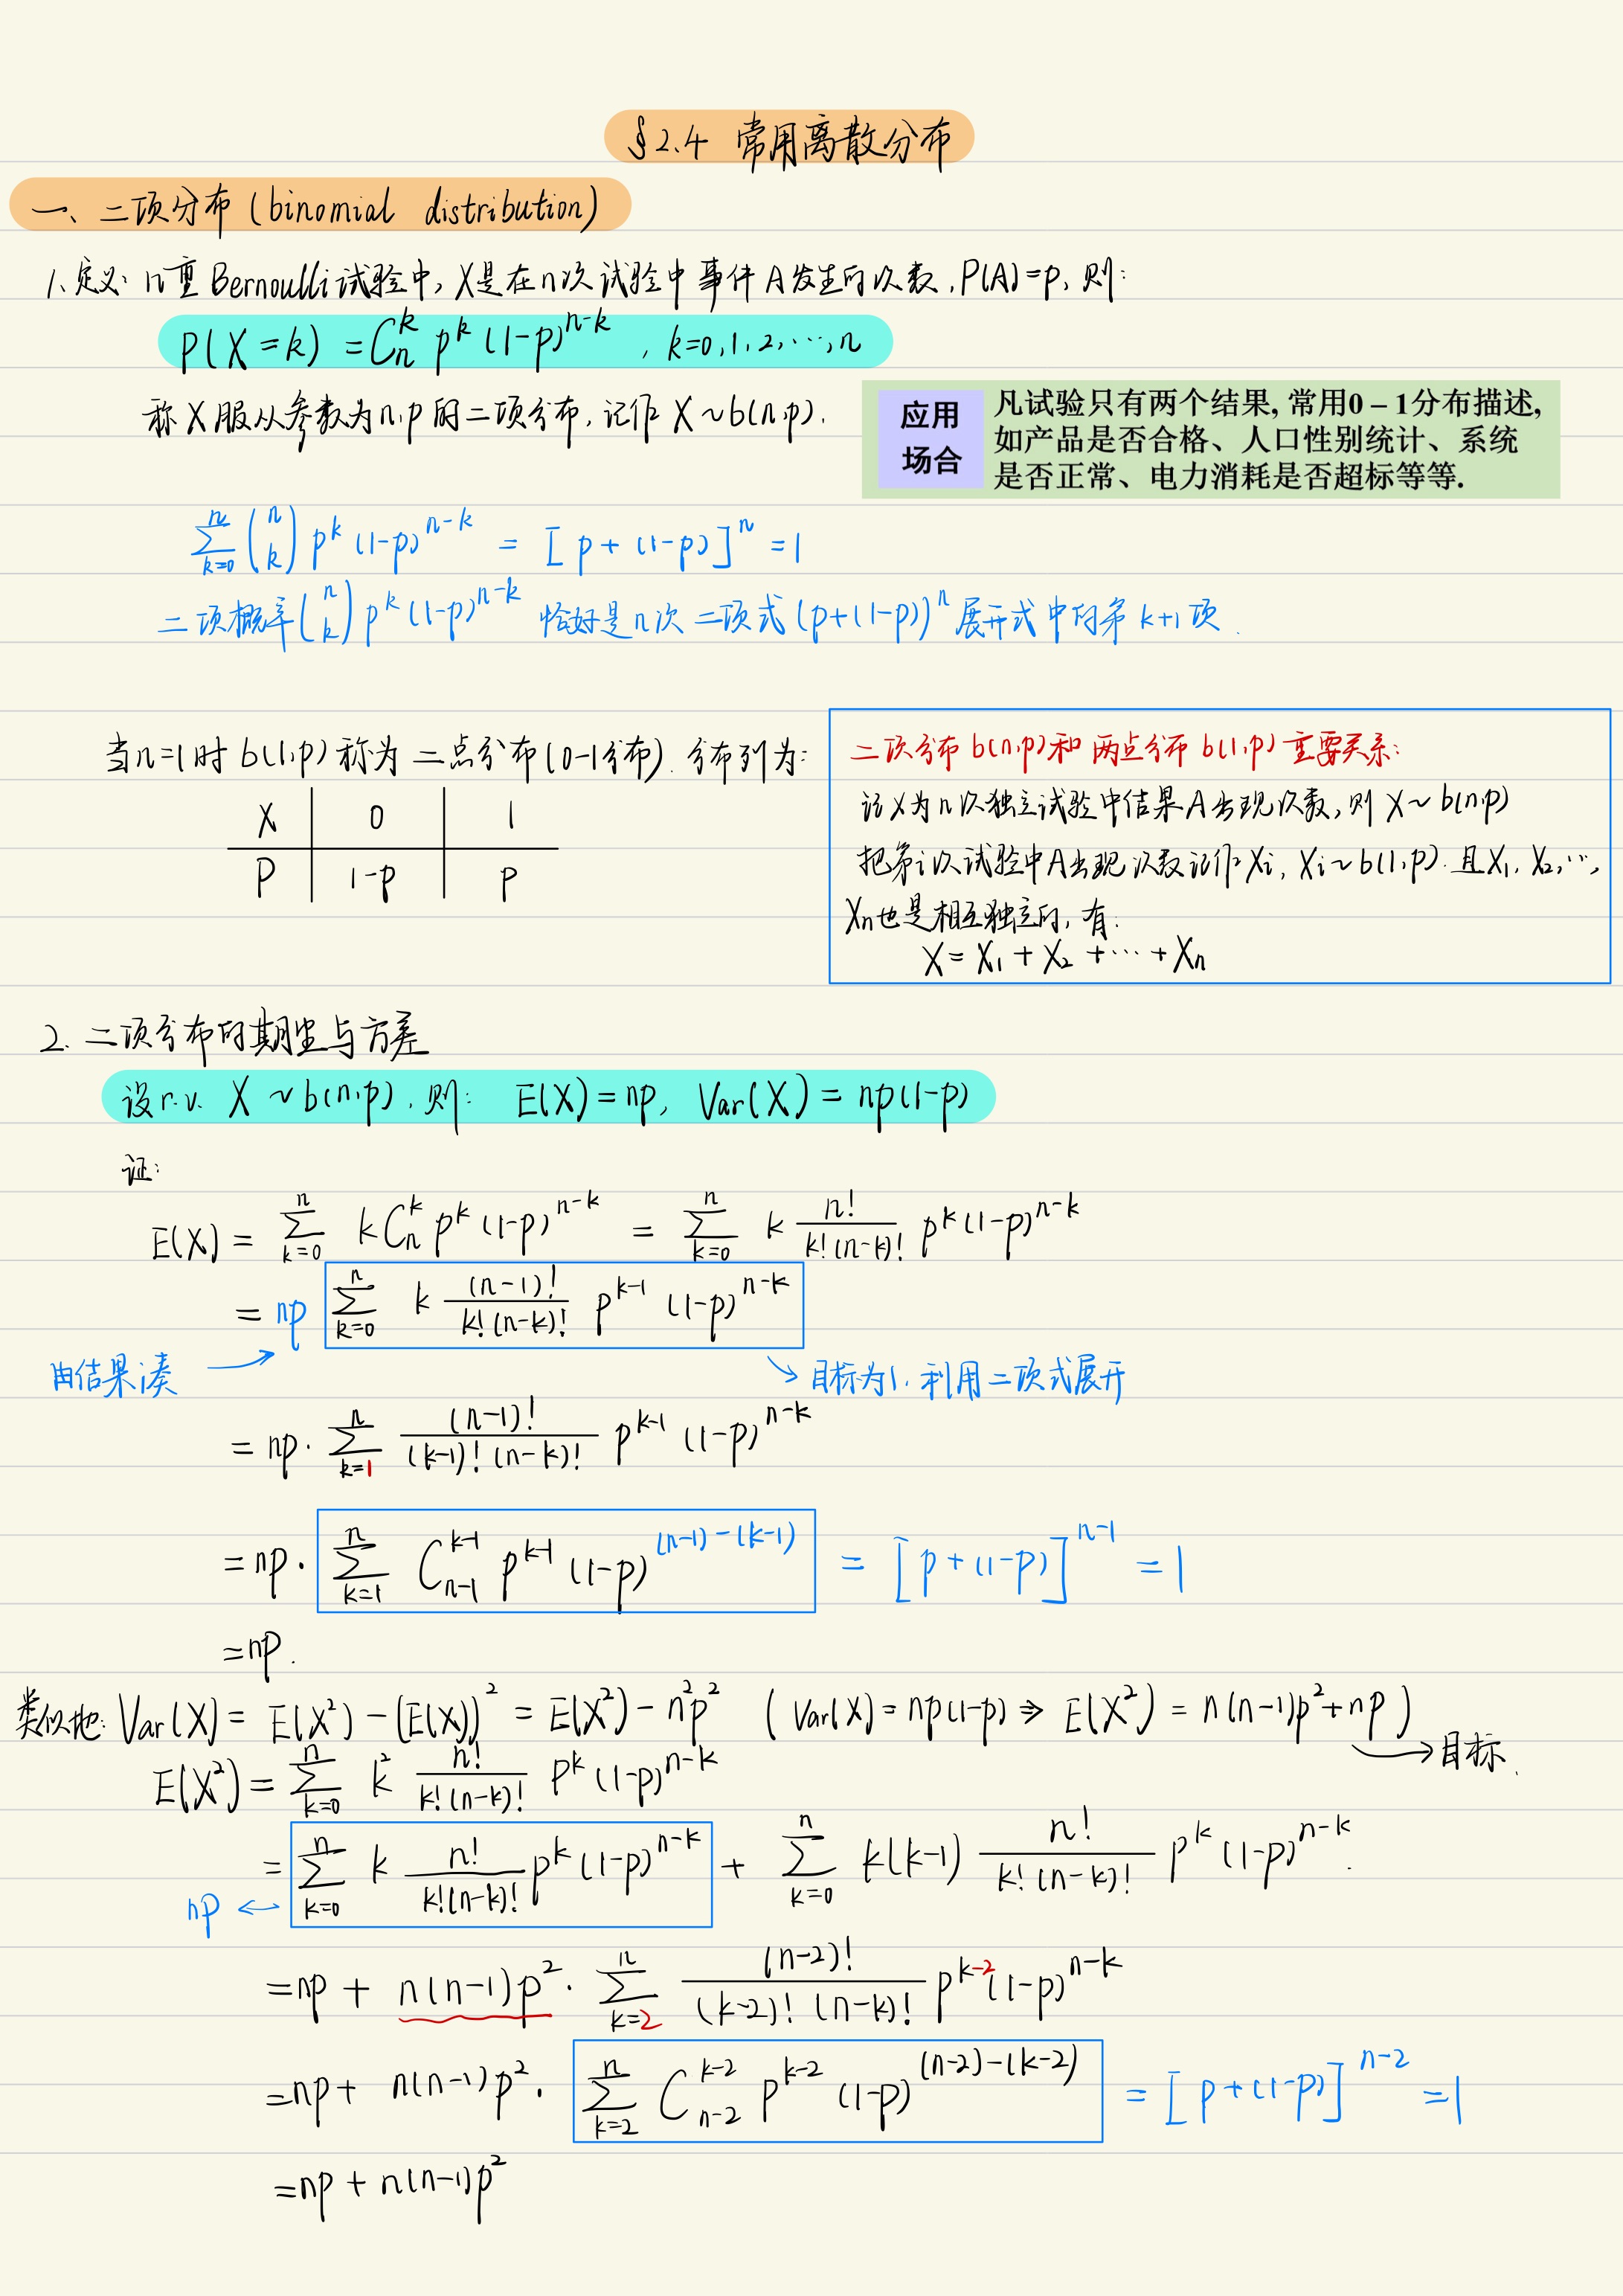 §2.4 常用离散分布
一、二项分布 (binomial distribution)
1. 定义: n重 Bernoulli 试验中, X是在n次试验中事件A发生的次数, P(A)=p, 则:
P(X=k) = C_n^k p^k (1-p)^{n-k} , k=0,1,2,…,n
称X服从参数为n,p的二项分布, 记作 X~b(n,p).
应用场合
凡试验只有两个结果, 常用0－1分布描述,
如产品是否合格、人口性别统计、系统
是否正常、电力消耗是否超标等等.
∑_{k=0}^{n} \binom{n}{k} p^k (1-p)^{n-k} = [p+(1-p)]^n = 1
二项概率 \binom{n}{k} p^k (1-p)^{n-k} 恰好是n次二项式 (p+(1-p))^n 展开式中的第 k+1 项.
当n=1时 b(1,p) 称为二点分布(0-1分布). 分布列为:
X | 0 | 1
P | 1-p | p
二项分布 b(n,p)和两点分布 b(1,p) 重要关系:
记X为n次独立试验中结果A出现次数, 则 X~b(n,p)
把第i次试验中A出现次数记作Xi, Xi~b(1,p). 且X_1, X_2,…,
X_n也是相互独立的, 有:
X = X_1 + X_2 + … + X_n
2. 二项分布的期望与方差
设r.v. X~b(n,p), 则: E(X)=np, Var(X)=np(1-p)
证:
E(X) = ∑_{k=0}^{n} k C_n^k p^k (1-p)^{n-k} = ∑_{k=0}^{n} k \frac{n!}{k!(n-k)!} p^k (1-p)^{n-k}
= np ∑_{k=0}^{n} k \frac{(n-1)!}{k!(n-k)!} p^{k-1} (1-p)^{n-k}
由结果凑 → ↘ 目标为1, 利用二项式展开
= np · ∑_{k=1}^{n} \frac{(n-1)!}{(k-1)!(n-k)!} p^{k-1} (1-p)^{n-k}
= np · ∑_{k=1}^{n} C_{n-1}^{k-1} p^{k-1} (1-p)^{(n-1)-(k-1)} = [p+(1-p)]^{n-1} = 1
= np.
类似地: Var(X) = E(X^2) - (E(X))^2 = E(X^2) - n^2p^2 ( Var(X)=np(1-p) ⇒ E(X^2) = n(n-1)p^2+np )
→ 目标.
E(X^2) = ∑_{k=0}^{n} k^2 \frac{n!}{k!(n-k)!} p^k (1-p)^{n-k}
= ∑_{k=0}^{n} k \frac{n!}{k!(n-k)!} p^k (1-p)^{n-k} + ∑_{k=0}^{n} k(k-1) \frac{n!}{k!(n-k)!} p^k (1-p)^{n-k}.
np ←
= np + n(n-1)p^2 · ∑_{k=2}^{n} \frac{(n-2)!}{(k-2)!(n-k)!} p^{k-2} (1-p)^{n-k}
= np + n(n-1)p^2 · ∑_{k=2}^{n} C_{n-2}^{k-2} p^{k-2} (1-p)^{(n-2)-(k-2)} = [p+(1-p)]^{n-2} = 1
= np + n(n-1)p^2